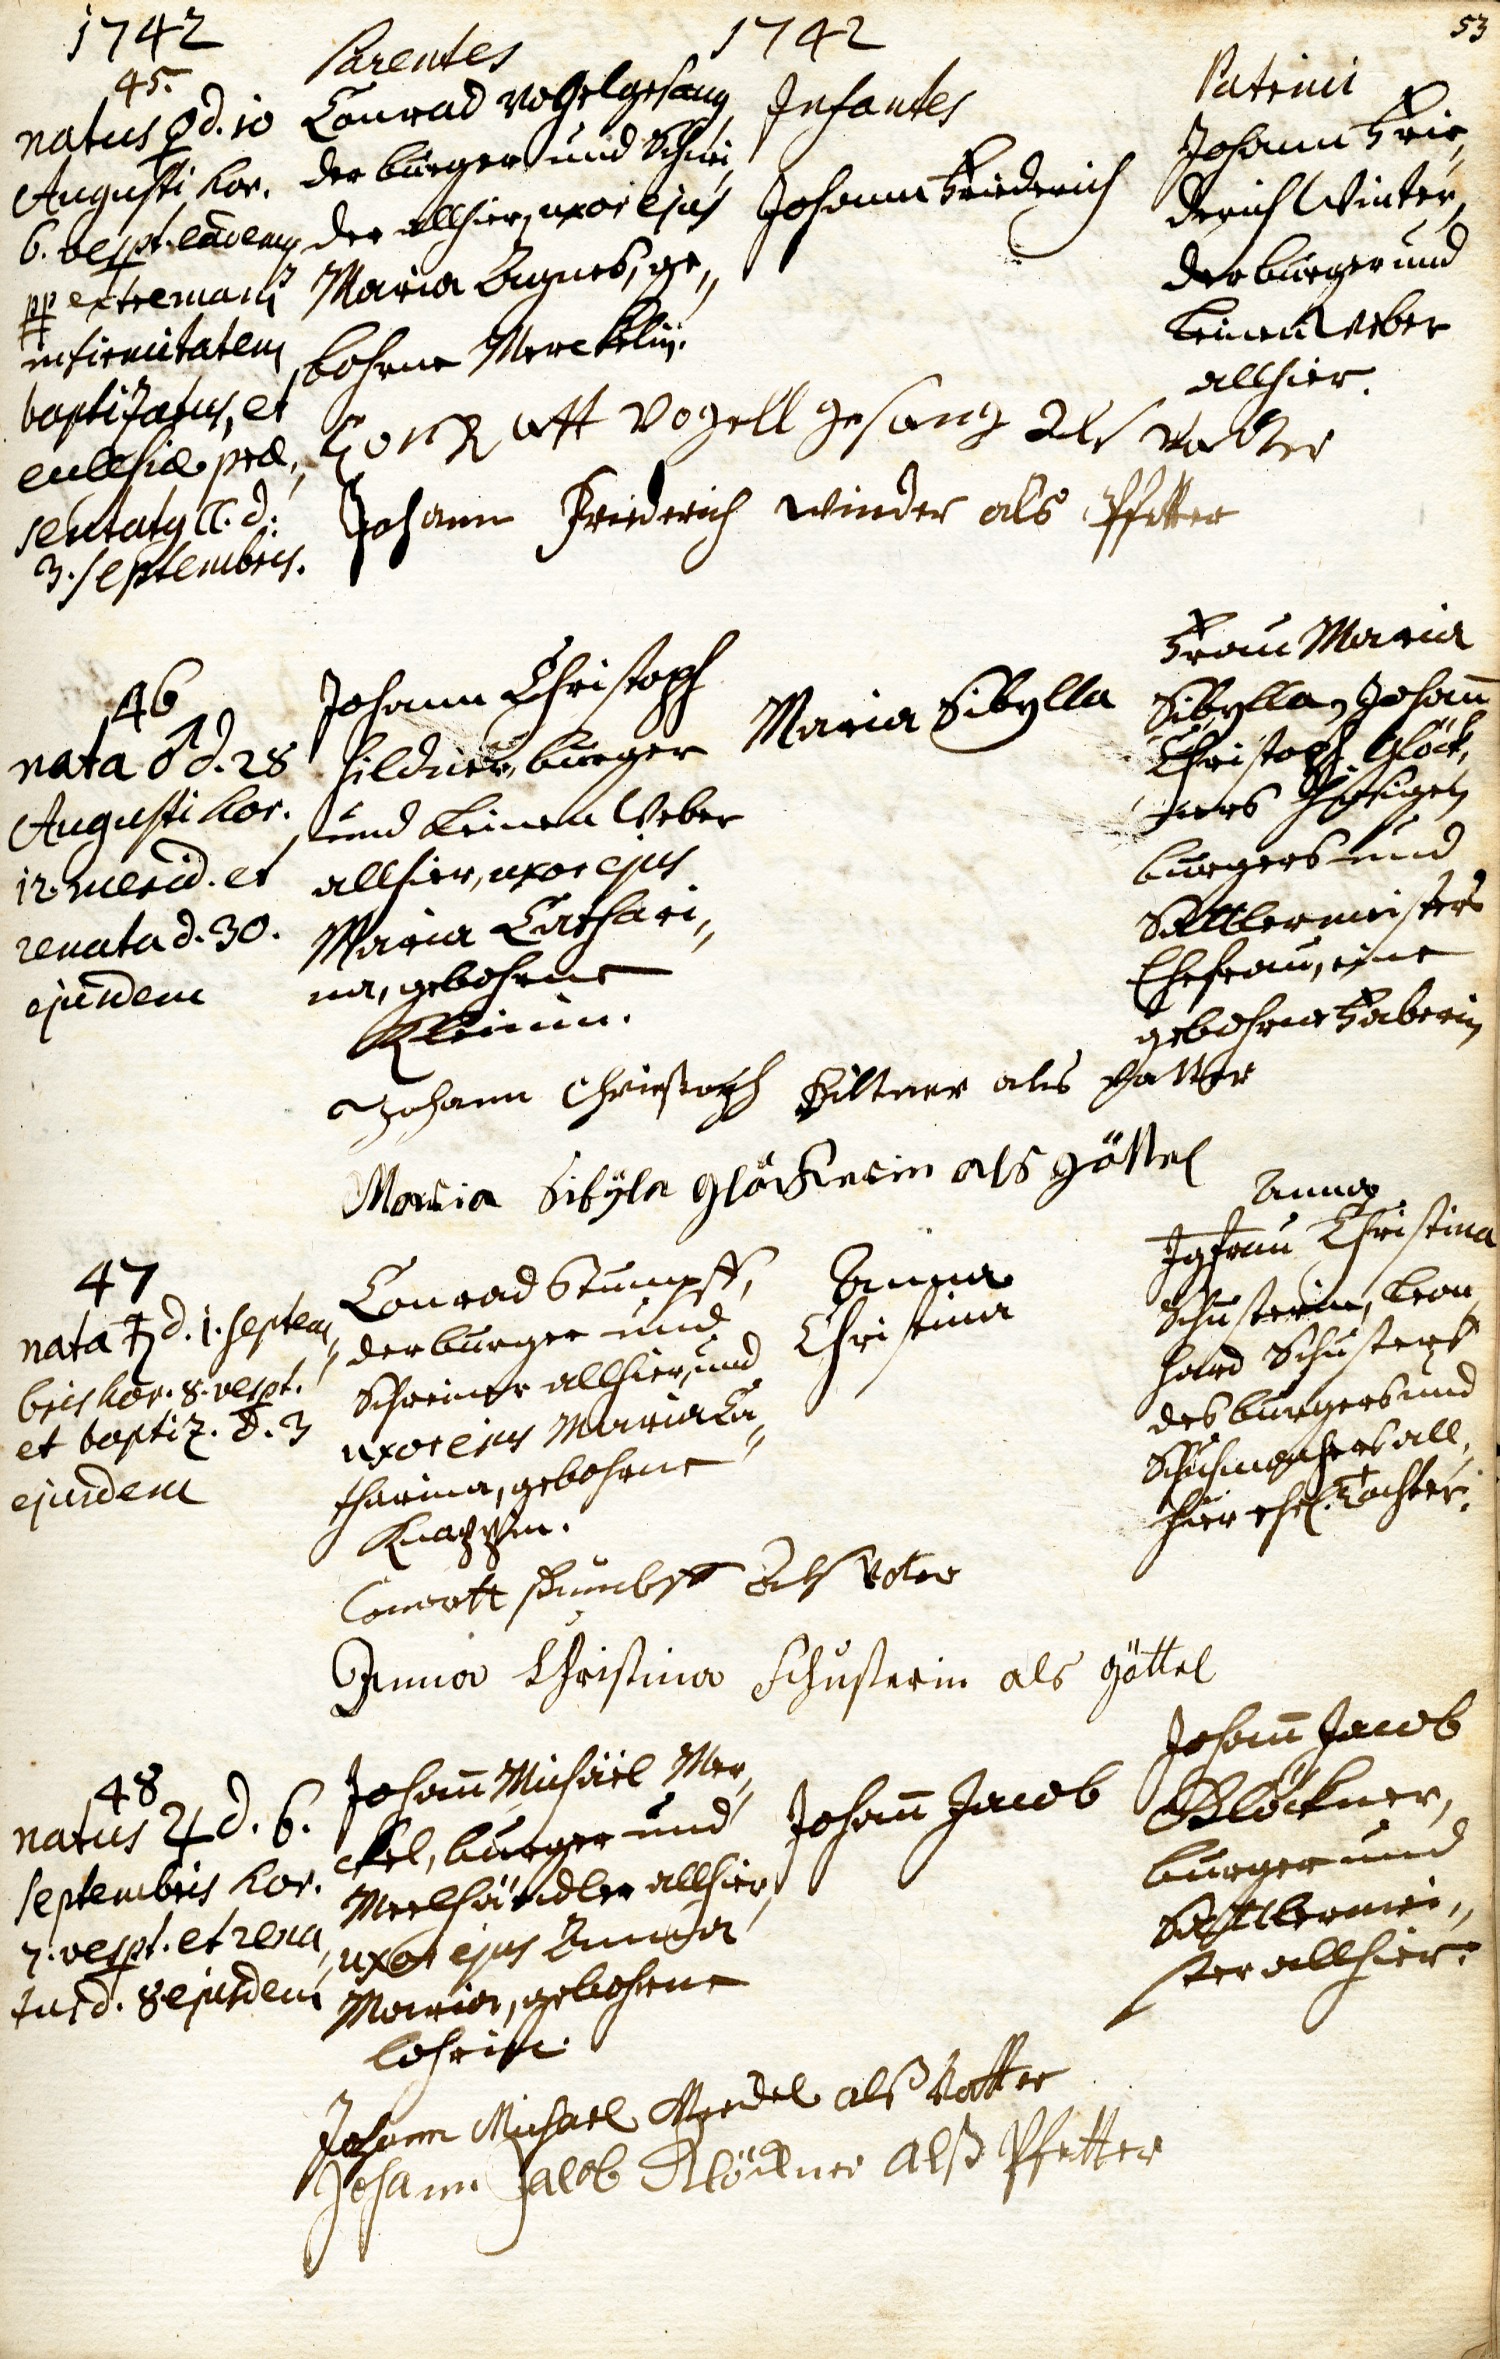 53
1742
1742
Parentes
Infantes
Patrini
45.
natus ♀ d. 10
Augusti hor.
6. vesp. eâdemq
pp extremam
infirmitatem
baptizatus, et
ecclesiæ præ„
sentatus d.
3. Septembris.
Conrad Vogelgesang
der burger und Schnei„
der allhier, uxor ejus
Maria Agnes, ge„
bohrne Merckelin.
Johann Friederich
Johann Frie„
derich Winter,
der burger und
Leinen Weber
allhier.
Conratt Vogellgesang Als Vatter
Johann Friederich Winder als Pfetter
46
nata ♂ d. 28
Augusti hor.
12. merid. et
renata d. 30.
ejusdem
Johann Christoph
Hildner, burger
und Leinen Weber
allhier, uxor ejus
Maria Cathari„
na, gebohrne
Kleinin.
Maria Sibylla
Frau Maria
Sibylla, Johañ
Christoph Glöck„
ners hiesigen
burgers und
Sattlermeisters
Ehefrau, eine
gebohrne Faberin
Johann Christoph Hiltner als Vatter
Maria Sibÿla Glöcknerin als Göttel
47
nata ♄ d. 1. Septem„
bris hor. 8. vesp.
et baptiz. d. 3
ejusdem
Conrad Stumpff,
der burger und
Schreiner allhier, und
uxor ejus Maria Ca„
tharina, gebohrne
Knappin.
Anna
Christina
Anna
Jgfrau Christina
Schusterin, Leon„
hard Schusters
des burgers und
Schuhmachers all„
hier ehel. Tochter.
Conratt stumbff Als Vater
Anna Christina Schusterin als göttel
48
natus ♃ d. 6.
Septembris hor.
7. vesp. et rena„
tus d. 8 ejusdem
Johañ Michäel Mer„
ckel, burger und
Meelhändler allhier,
uxor ejus Anna
Maria, gebohrne
Lohrin.
Johañ Jacob
Johañ Jacob
Glöckner,
burger und
Sattlermei„
ster allhier.
Johann Michael Merckel alß Vatter
Johann Jacob Klöckner alß Pfetter